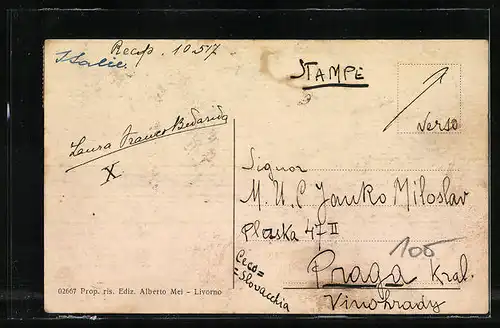 Recep. 10517
Italie
STAMPE
verso
Laura Franco Bedarida
X
Signor
M. U. C Janko Miloslav
Plaska 47 II
100
Ceco=
=Slovacchia
Praga Kral.
Vinohrady
02667 Prop. ris. Ediz. Alberto Mei - Livorno